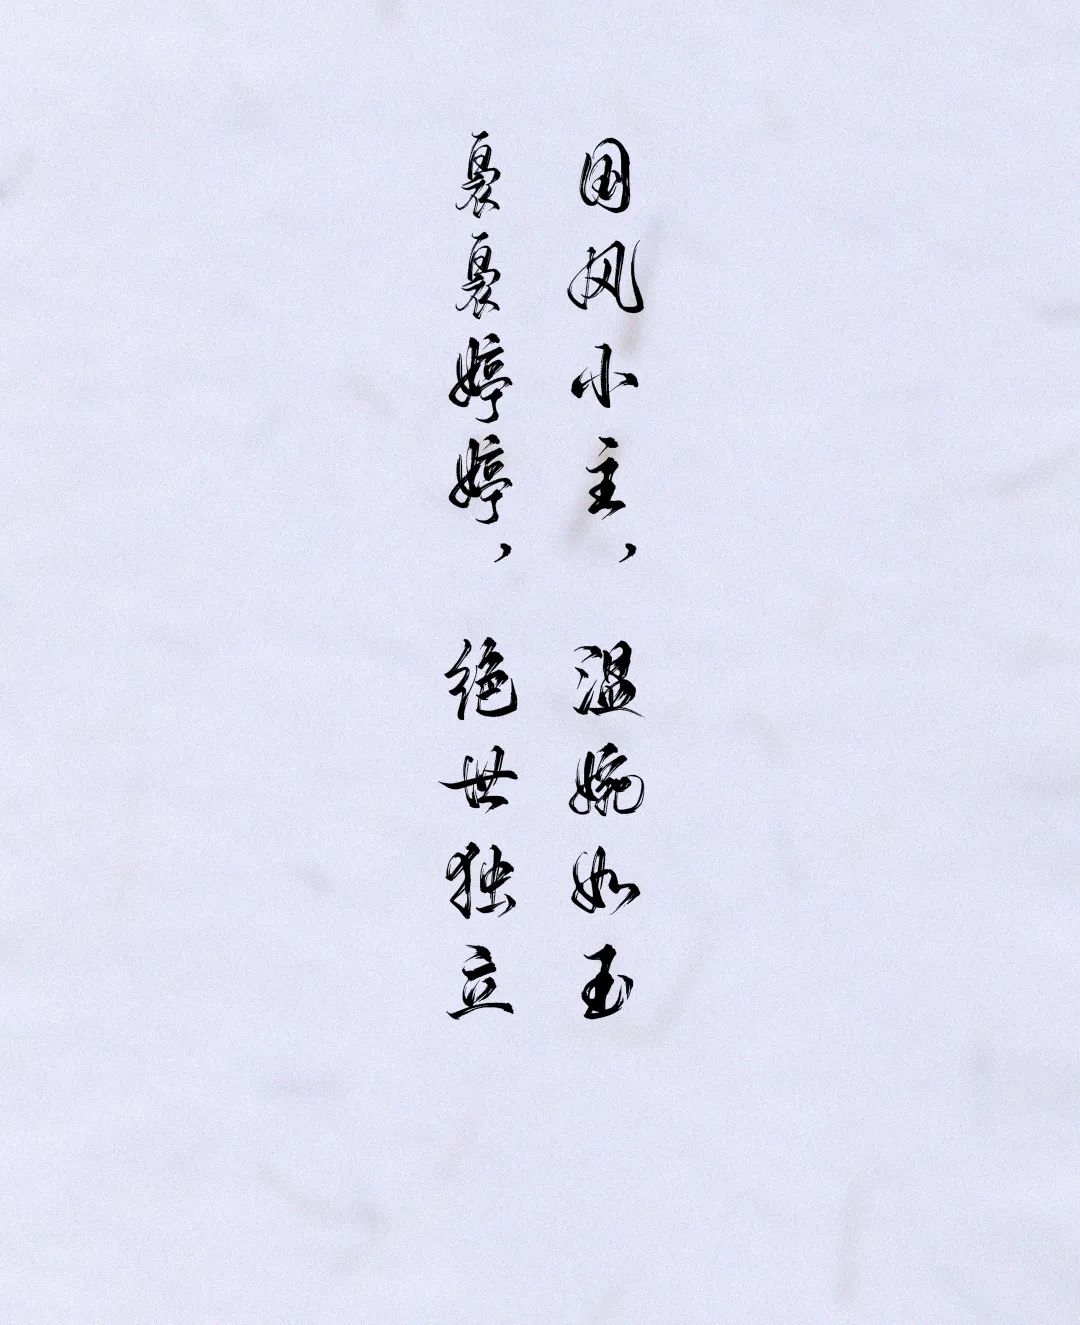 国风小主，温婉如玉
袅袅婷婷，绝世独立